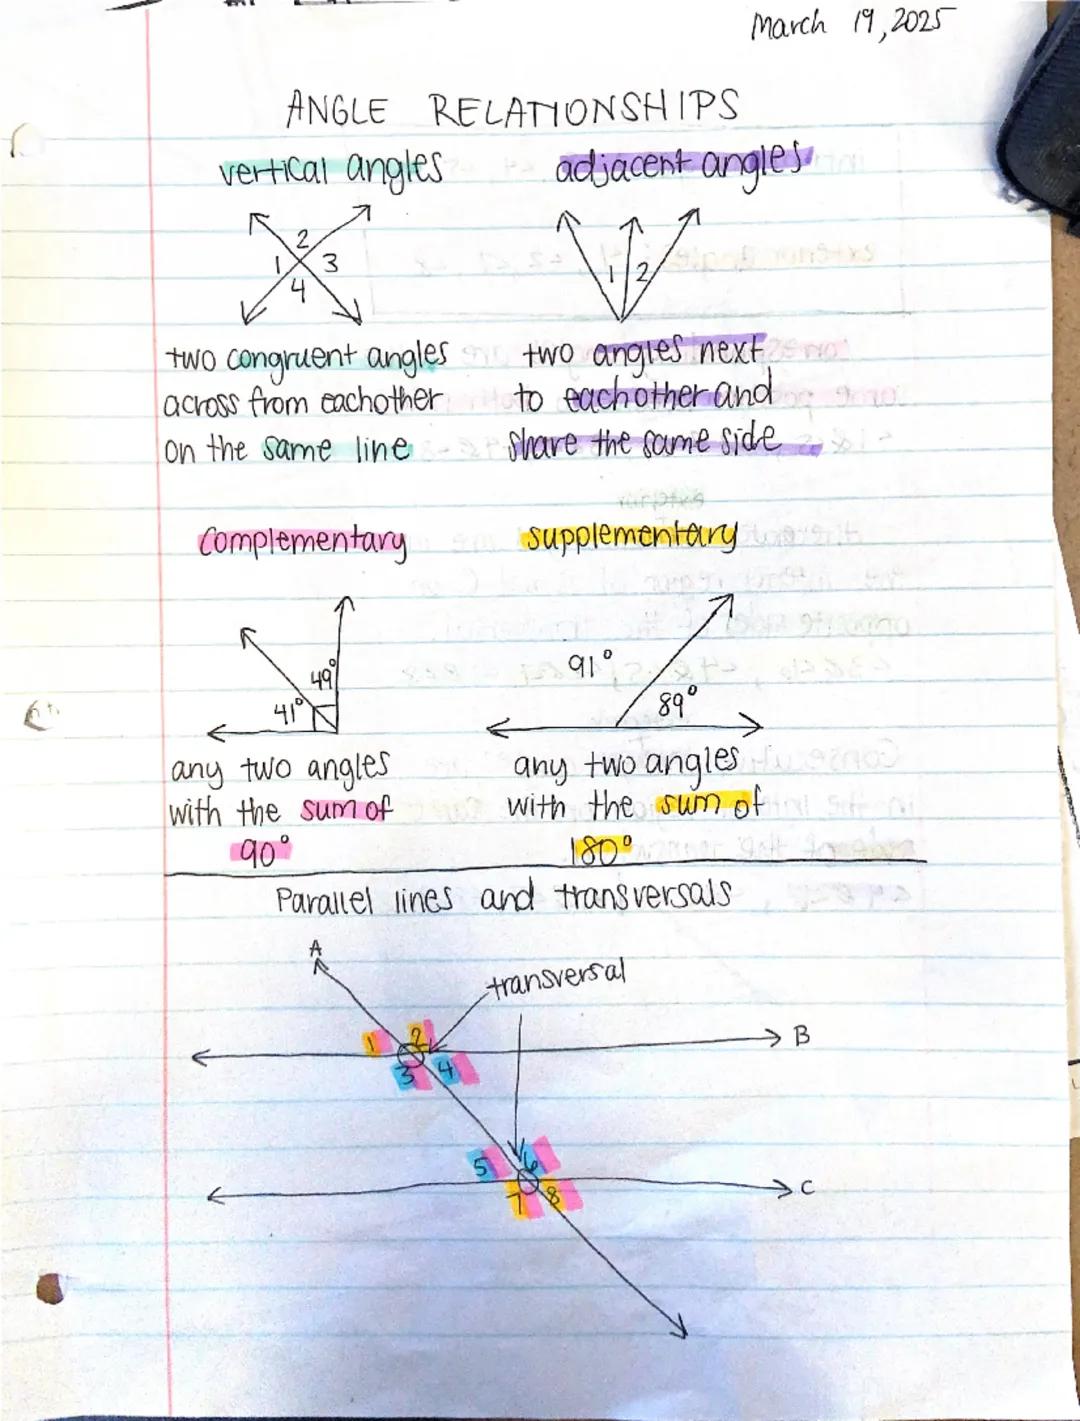 March 19, 2025
ANGLE RELATIONSHIPS
vertical angles
2
1 3
4
two congruent angles
across from eachother
on the same line
adjacent angles
1 2
two angles next
to eachother and
share the same side
complementary
49°
41°
any two angles
with the sum of
90°
supplementary
91°
89°
any two angles
with the sum of
180°
Parallel lines and transversals
A
transversal
1 2
B
3 4
5 6
C
7 8